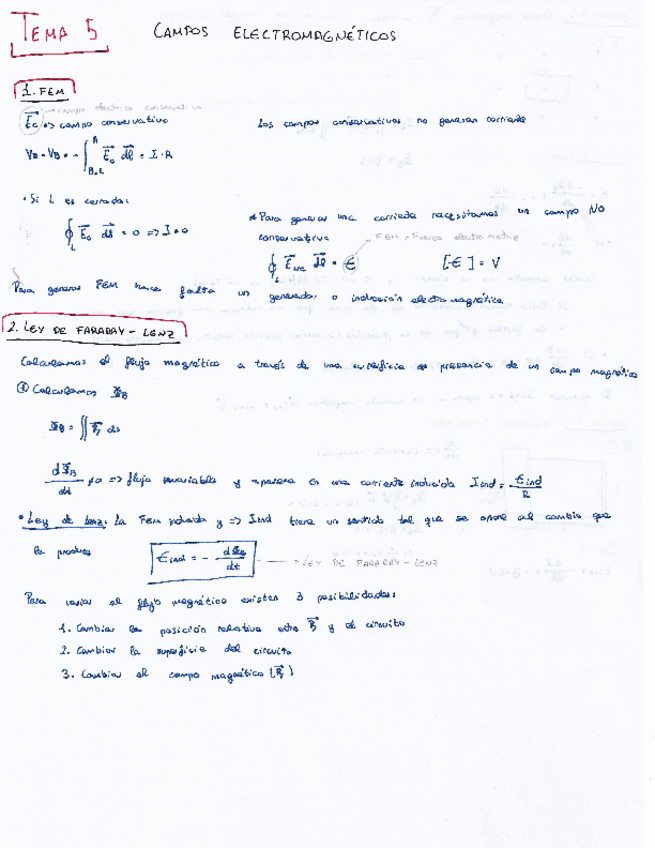 TEMA 5 CAMPOS ELECTROMAGNÉTICOS
1. FEM
→ campo electrico conservativo
E⃗c => campo conservativo Los campos conservativos no generan corriente
= - ∫ E⃗c dl⃗ = I·R
· Si L es cerrada:
∮L E⃗c dl⃗ = 0 => I = 0
* Para generar una corriente necesitamos un campo NO
conservativo
FEM = Fuerza electro motriz
∮L dl⃗ = Є [Є] = V
Para generar FEM hace falta un generador o inducción electro magnética
2. LEY DE FARADAY - LENZ
Calculamos el flujo magnético a través de una superficie en presencia de un campo magnético
① Calculamos ΦB
ΦB = ∬ B⃗ ds
dΦB/dt ≠ 0 => flujo variable y aparece una corriente inducida Iind = Єind/R
• Ley de Lenz: La FEM inducida y => Iind tiene un sentido tal que se opone al cambio que
la produce
Єind = - dΦB/dt → LEY DE FARADAY - LENZ
Para variar el flujo magnético existen 3 posibilidades:
1. Cambiar la posición relativa entre B⃗ y el circuito
2. Cambiar la superficie del circuito
3. Cambiar el campo magnético (B⃗)